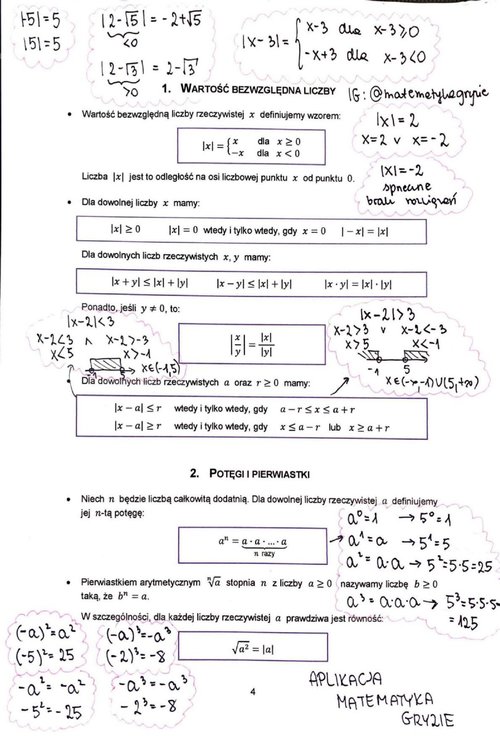 |-5|=5
|5|=5
|2-√5| = -2+√5
<0
|2-√3| = 2-√3
>0
|x-3| = { x-3 dla x-3≥0
-x+3 dla x-3<0
1. WARTOŚĆ BEZWZGLĘDNA LICZBY
IG: @matematykagryzie
• Wartość bezwzględną liczby rzeczywistej x definiujemy wzorem:
|x| = { x dla x ≥ 0
−x dla x < 0
|x| = 2
x=2 v x=-2
Liczba |x| jest to odległość na osi liczbowej punktu x od punktu 0.
|x|=-2
sprzeczne
brak rozwiązań
• Dla dowolnej liczby x mamy:
|x| ≥ 0 |x| = 0 wtedy i tylko wtedy, gdy x = 0 |−x| = |x|
Dla dowolnych liczb rzeczywistych x, y mamy:
|x + y| ≤ |x| + |y| |x − y| ≤ |x| + |y| |x · y| = |x| · |y|
Ponadto, jeśli y ≠ 0, to:
|x/y| = |x|/|y|
|x-2|<3
x-2<3 ∧ x-2>-3
x<5 x>-1
-1 5 x∈(-1,5)
|x-2|>3
x-2>3 v x-2<-3
x>5 x<-1
-1 5
x∈(-∞,-1)∪(5,+∞)
• Dla dowolnych liczb rzeczywistych a oraz r ≥ 0 mamy:
|x − a| ≤ r wtedy i tylko wtedy, gdy a − r ≤ x ≤ a + r
|x − a| ≥ r wtedy i tylko wtedy, gdy x ≤ a − r lub x ≥ a + r
2. POTĘGI I PIERWIASTKI
• Niech n będzie liczbą całkowitą dodatnią. Dla dowolnej liczby rzeczywistej a definiujemy
jej n-tą potęgę:
aⁿ = a · a · ... · a
n razy
a⁰=1 → 5⁰=1
a¹=a → 5¹=5
a²=a·a → 5²=5·5=25
a³=a·a·a → 5³=5·5·5=
=125
• Pierwiastkiem arytmetycznym ⁿ√a stopnia n z liczby a ≥ 0 nazywamy liczbę b ≥ 0
taką, że bⁿ = a.
W szczególności, dla każdej liczby rzeczywistej a prawdziwa jest równość:
√a² = |a|
(-a)²=a²
(-5)²=25
(-a)³=-a³
(-2)³=-8
-a²=-a²
-5²=-25
-a³=-a³
-2³=-8
4
APLIKACJA
MATEMATYKA
GRYZIE